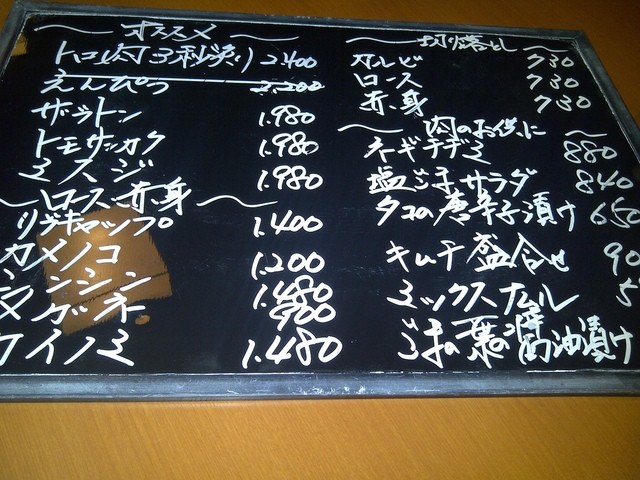 オススメ
トロ肉(3秒炙り) 2.400
えんぴつ 2.200
ザブトン 1.980
トモサンカク 1.980
ミスジ 1.980
ロース・赤身
リブキャップ 1.400
カメノコ 1.200
ランシン 1.480
マクゲネ 900
ケイノミ 1.480
切り落とし
カルビ 730
ロース 730
赤身 730
肉のお供に
ネギチヂミ 880
塩ごまサラダ 840
タコの唐辛子漬け 650
キムチ盛合せ 90
ミックスナムル 5
ごまの葉の醤油漬け